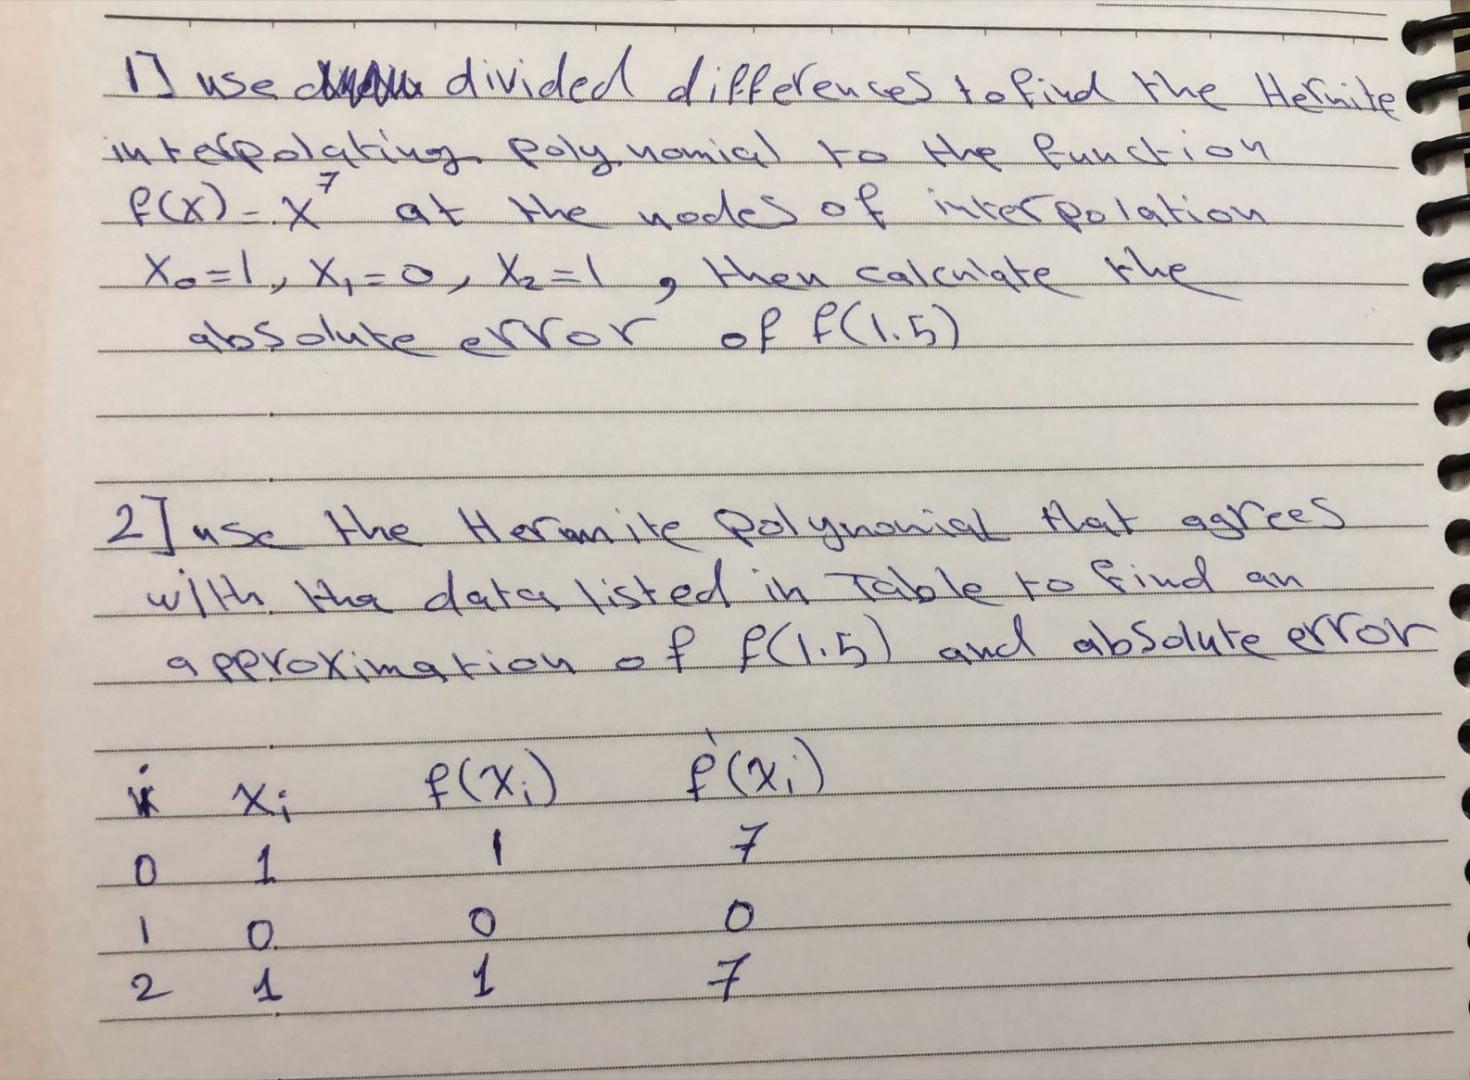 1] use divided differences to find the Hermite
interpolating polynomial to the function
f(x) = x⁷ at the nodes of interpolation
x₀=1, x₁=0, x₂=1, then calculate the
absolute error of f(1.5)
2] use the Heramite polynomial that agrees
with the data listed in Table to find an
approximation of f(1.5) and absolute error
i xᵢ f(xᵢ) f'(xᵢ)
0 1 1 7
1 0 0 0
2 1 1 7